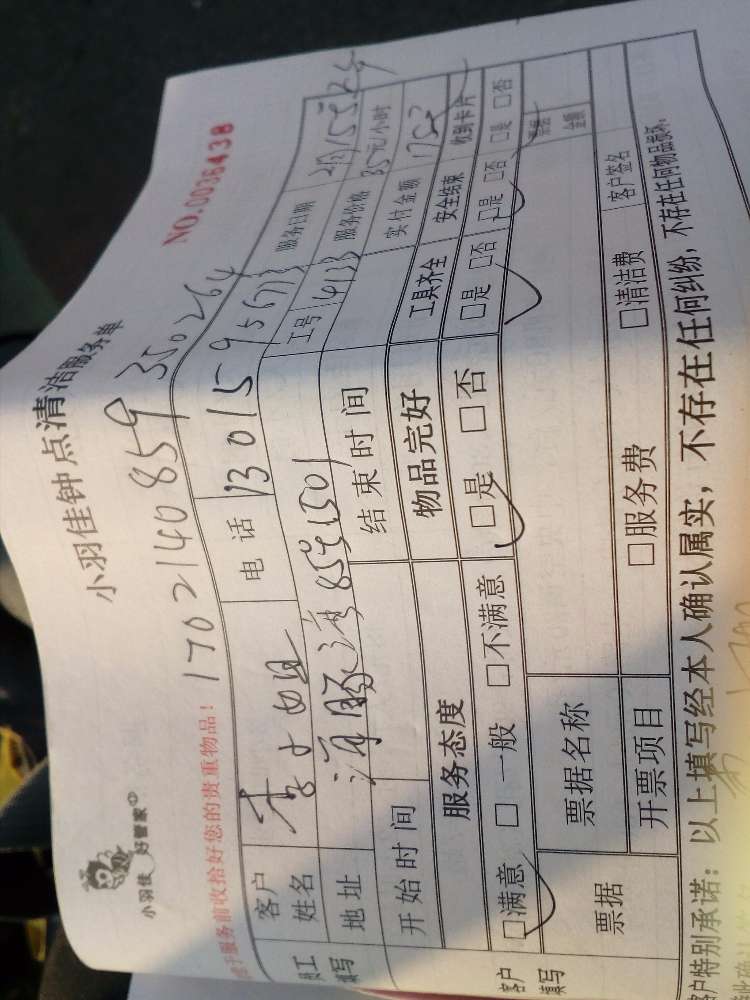 小羽佳 好管家
小羽佳钟点清洁服务单
NO.0036438
请于服务前收拾好您的贵重物品!
1702140859350264
员工填写
客户姓名 李小姐 电话 13015956713 服务日期
地址 海豚湾859 1501 工号 14133 服务价格 35元/小时
开始时间 结束时间 实付金额
客户填写
服务态度 物品完好 工具齐全 安全结束 收到卡片
□满意 □一般 □不满意 □是 □否 □是 □否 □是 □否 □是 □否
票据 票据名称 票据金额
开票项目 □服务费 □清洁费 客户签名
客户特别承诺:以上填写经本人确认属实,不存在任何纠纷,不存在任何物品损坏.